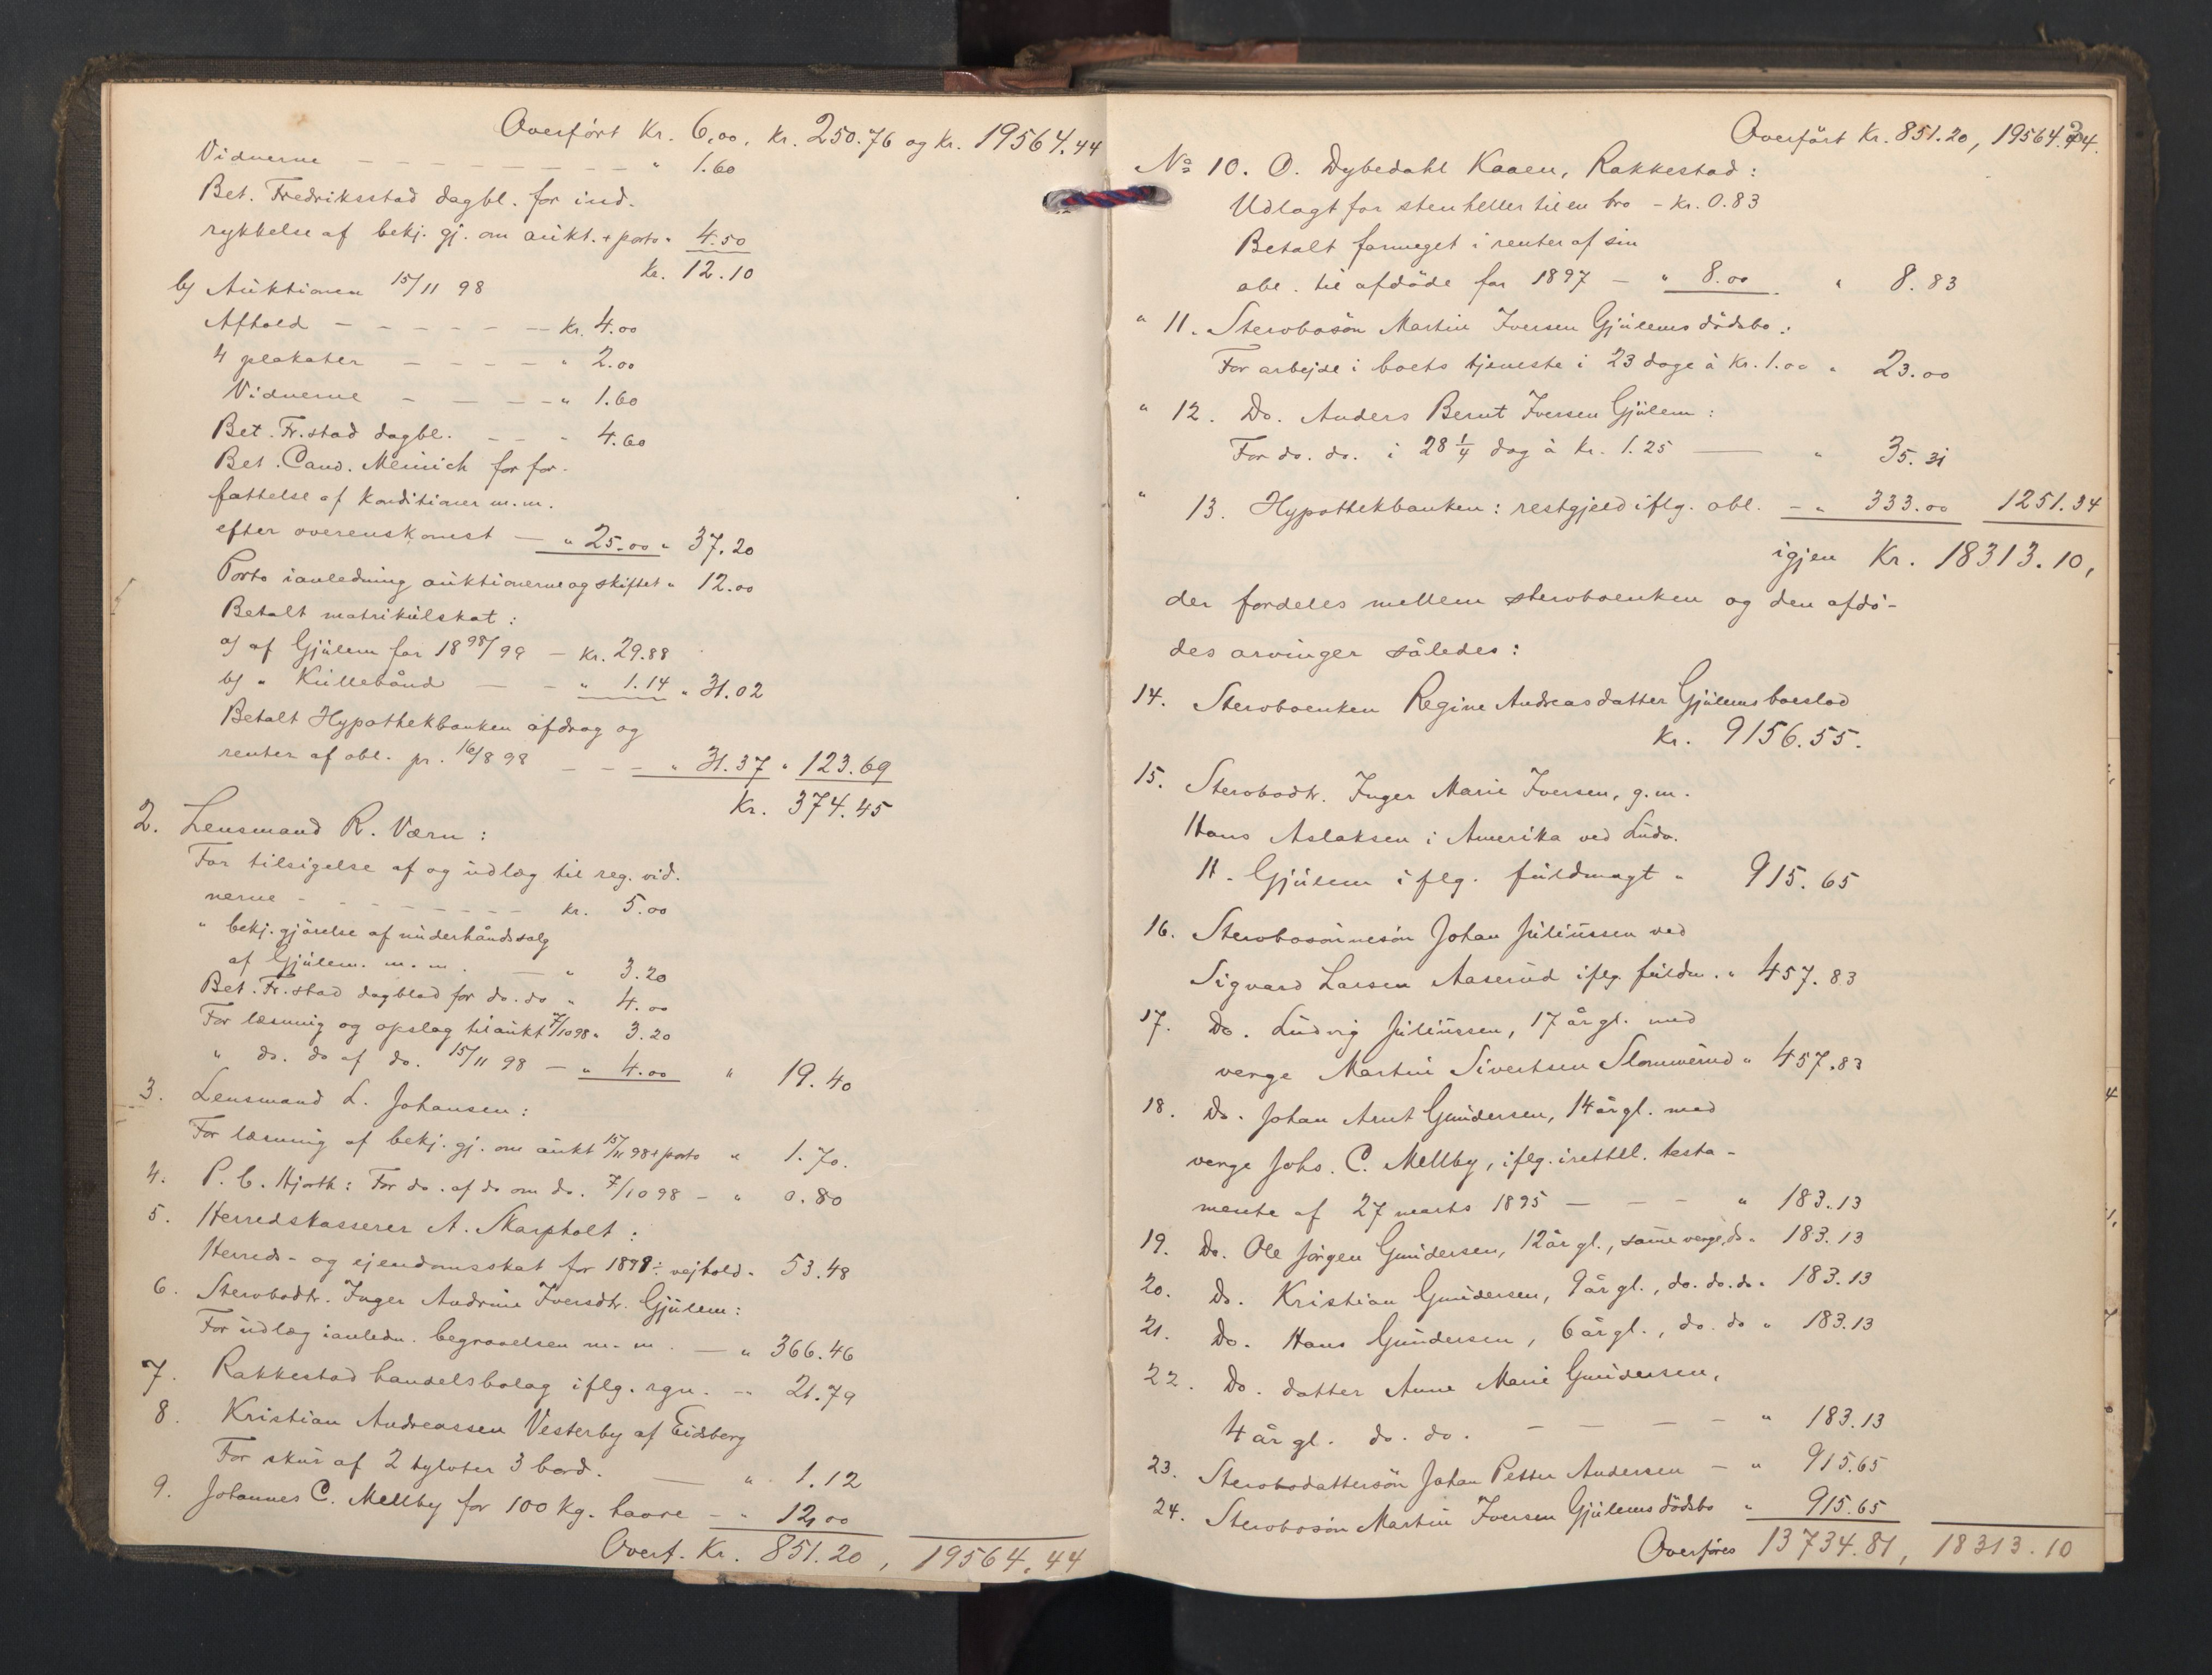 Overført Kr. 6,00, Kr. 250.76 og Kr. 19564.44
Vidnerne — — — — — — — " 1.60
Bet. Fredriksstad dagbl. for ind-
rykkelse af bekj. gj. om aukt. + porto " 4.50
Kr. 12.10
b) Auktionen 15/11 98
Afhold — — — — — — Kr. 4.00
4 plakater — — — — " 2.00
Vidnerne — — — — " 1.60
Bet. Fr.stad dagbl. — — " 4.60
Bet. Cand. Meinich for for-
fattelse af konditioner m.m.
efter overenskomst — " 25.00 " 37.20
Porto i anledning auktionerne og skiftet " 12.00
Betalt matrikulskat:
a) af Gjulem for 1898/99 — Kr. 29.88
b) " Kullebånd — — " 1.14 " 31.02
Betalt Hypothekbanken afdrag og
renter af obl. pr. 16/8 98 — — — " 31.37 " 123.69
Kr. 374.45
2. Lensmand R.Værn:
For tilsigelse af og udlæg til reg. vid-
nerne — — — — — — — Kr. 5.00
" bekj. gjørelse af underhåndssalg
af Gjulem. m. m. — " 3.20
Bet. Fr.stad dagblad for do. do " 4.00
For læsning og opslag til aukt 7/10 98 " 3.20
" do. do af do. 15/11 98 — " 4.00 " 19.40
3. Lensmand L. Johansen:
For læsning af bekj. gj. om aukt 15/11 98 + porto " 1.70.
4. P. C. Hjorth: For do. af do om do. 7/10 98 — " 0.80
5. Herredskasserer A. Skarpholt:
Herreds- og ejendomsskat for 1898 ÷ vejhold " 53.48
6. Stervbodtr. Inger Andrine Iversdtr. Gjulem:
For udlæg i anledn. begravelsen m. m. — " 366.46
7. Rakkestad handelsbolag iflg. rgn. — " 21.79
8. Kristian Andreassen Vesterby af Eidsberg
For skur af 2 tylvter 3 bord. — " 1.12
9. Johannes C. Mellby for 100 kg. havre — " 12,00
Overf. Kr. 851.20, 19564.44
Overført Kr. 851.20, 19564.44.
No 10. O. Dybedahl Kaaen, Rakkestad:
Udlagt for stenheller til en bro — Kr. 0.83
Betalt formeget i renter af sin
obl. til afdøde for 1897 — " 8.00 " 8.83
" 11. Stervbosøn Martin Iversen Gjulems dødsbo:
For arbejde i boets tjeneste i 23 dage à Kr. 1.00 " 23.00
" 12. Do. Anders Bernt Iversen Gjulem:
For do. do. i 28 1/4 dag à Kr. 1.25 — " 35.31
" 13. Hypothekbanken: restgjeld iflg. obl. — " 333.00 1251.34
igjen Kr. 18313.10,
der fordeles mellem stervboenken og den afdø-
des arvinger således:
14. Stervboenken Regine Andreasdatter Gjulems boeslod
Kr. 9156.55.
15. Stervbodtr. Inger Marie Iversen, g. m.
Hans Aslaksen i Amerika ved Ludv.
H. Gjulem iflg. fuldmagt " 915.65
16. Stervbosønnesøn Johan Juliussen ved
Sigvard Larsen Aaserud iflg. fuldm. " 457.83
17. Do. Ludvig Juliussen, 17 år gl. med
verge Martin Sivertsen Slomverud " 457.83
18. Do. Johan Arnt Gundersen, 14 år gl. med
verge Johs. C. Mellby, iflg. irettel. testa-
mente af 27 marts 1895 — — — " 183.13
19. Do. Ole Jørgen Gundersen, 12 år gl., same verge, do " 183.13
20. Do. Kristian Gundersen, 9 år gl., do. do. do " 183.13
21. Do. Hans Gundersen, 6 år gl., do. do " 183.13
22. Do. datter Anne Marie Gundersen,
4 år gl. do. do. — — — — " 183.13
23. Stervbodattersøn Johan Petter Andersen — " 915.65
24. Stervbosøn Martin Iversen Gjulems dødsbo " 915.65
Overføres 13734.81, 18313.10